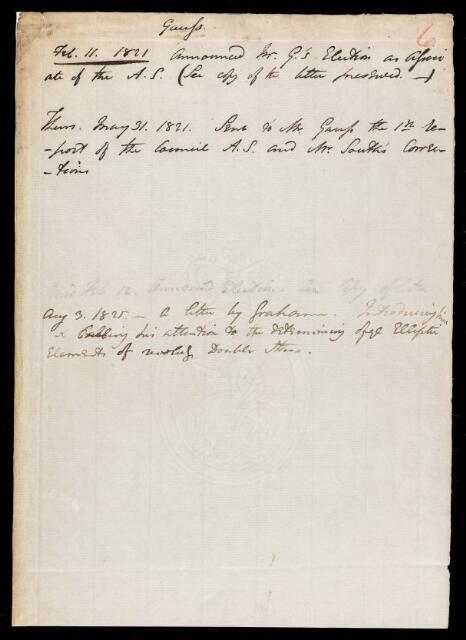 Gauss.
6
Feb. 11. 1821 Announced Mr. G's Election as Associ
ate of the A.S. (See copy of the letter preserved. —)
Thurs. May 31. 1821. Sent to Mr. Gauss the 1st Re-
-port of the Council A.S. and Mr. South's Correc-
-tions
Feb 12. Announced Election. See Copy of letter
Aug 3. 1825. — a letter by Grahame. Introducing him
& Calling his attention to the determining of ye Elliptic
Elements of Double Stars.